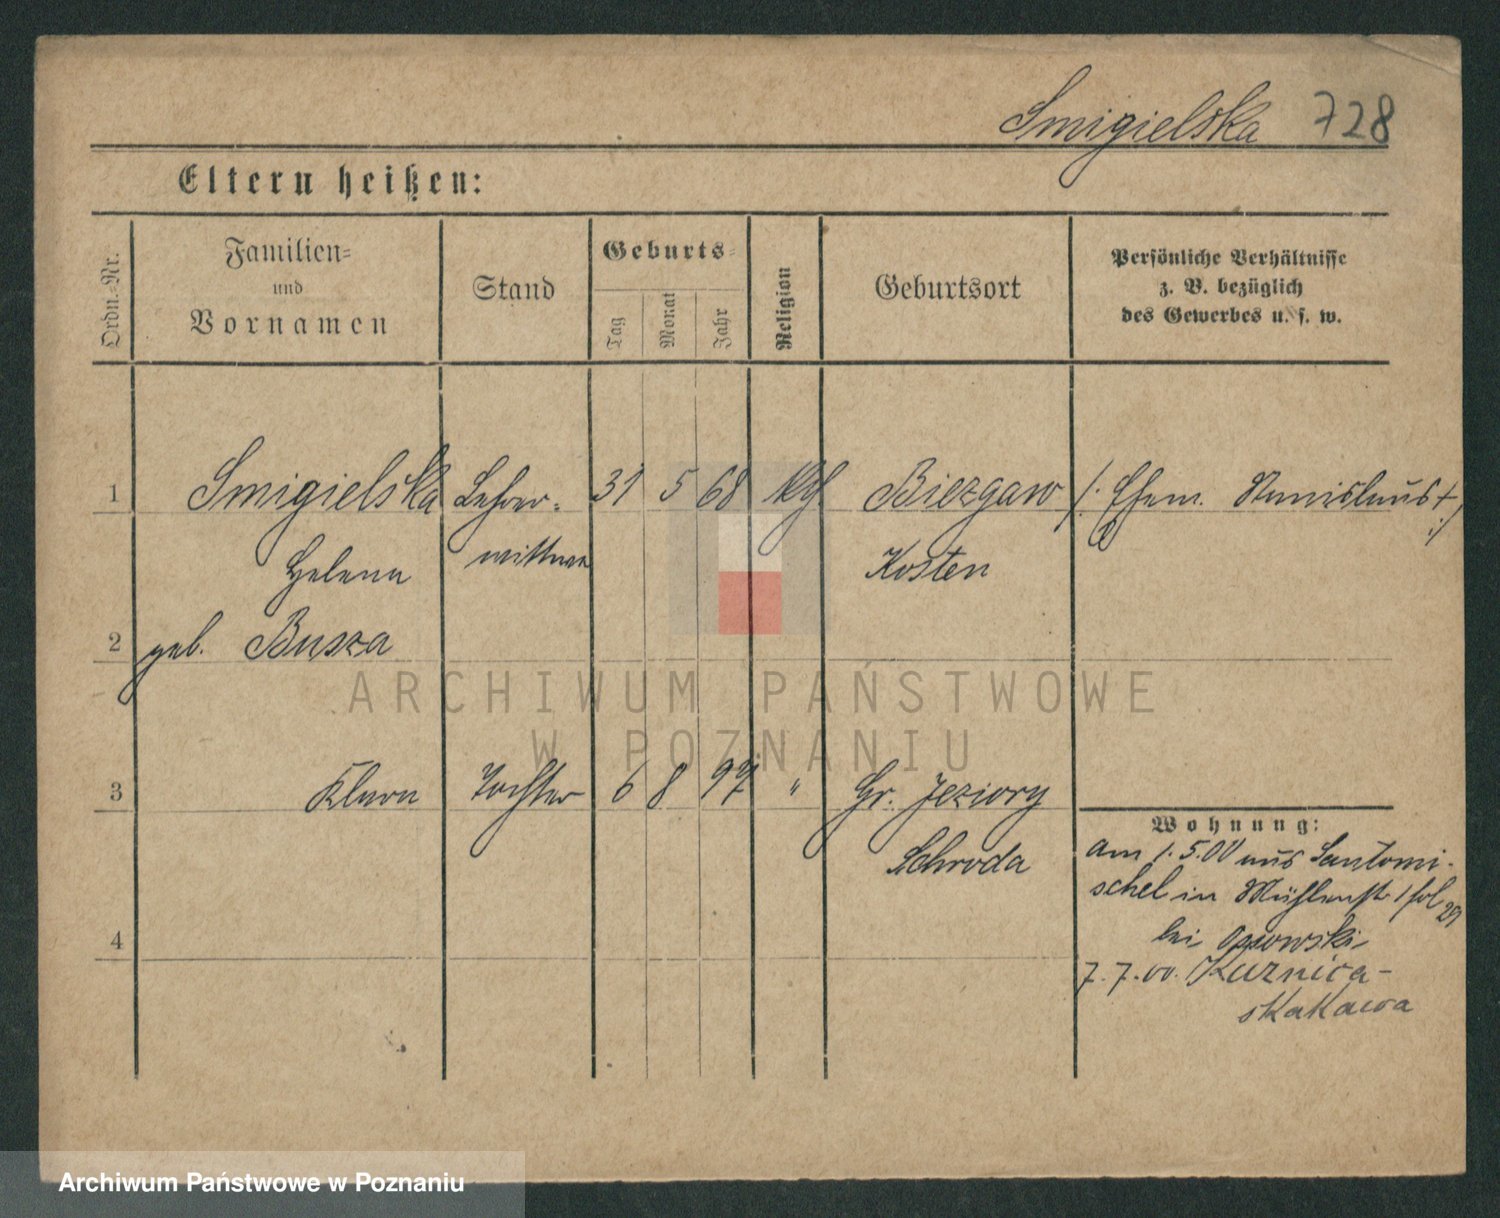 Smigielska 728
Eltern heißen:
Ordn.-Nr.
Familien-
und
Vornamen
Stand
Geburts-
Tag
Monat
Jahr
Religion
Geburtsort
Persönliche Verhältnisse
z. B. bezüglich
des Gewerbes u. s. w.
1 Smigielska Lehrer- 31 5 68 kth Biezgaw /: Ehem. Stanislaus + :/
Helena wittwe Kosten
2 geb. Busza
3 Klara Tochter 6 8 97 " Gr. Jeziory
Schroda
Wohnung:
am 1.5.00 aus Santomi-
schel in Mühlenstr
bei Ossowski
4
7.7.00. Kuznica-
skakawa
ARCHIWUM PAŃSTWOWE
W POZNANIU
Archiwum Państwowe w Poznaniu